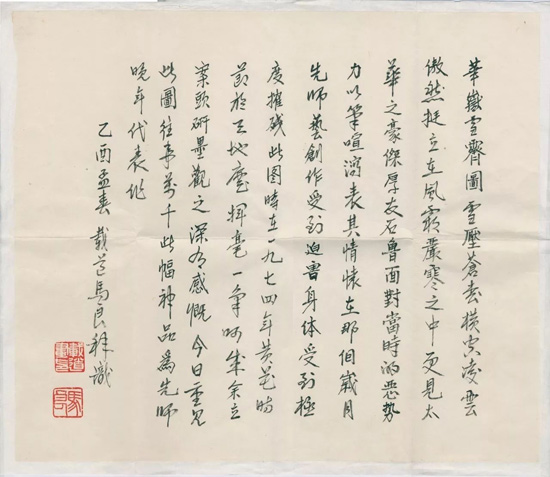 華嶽雪霽圖雪壓蒼橫空凌雲
傲然挺立在風霜嚴寒之中更見太
華之豪傑厚友石魯面對當時的惡勢
力以筆喧瀉表其情懷在那個歲月
先師藝創作受到迫害身体受到極
度摧残此图時在一九七四年黄花時
節於揮毫一氣呵成余立
案頭研墨觀之深感慨今日重見
此圖往事萬千此幅神品為先師
晚年代表作
乙酉孟春 載道馬良識